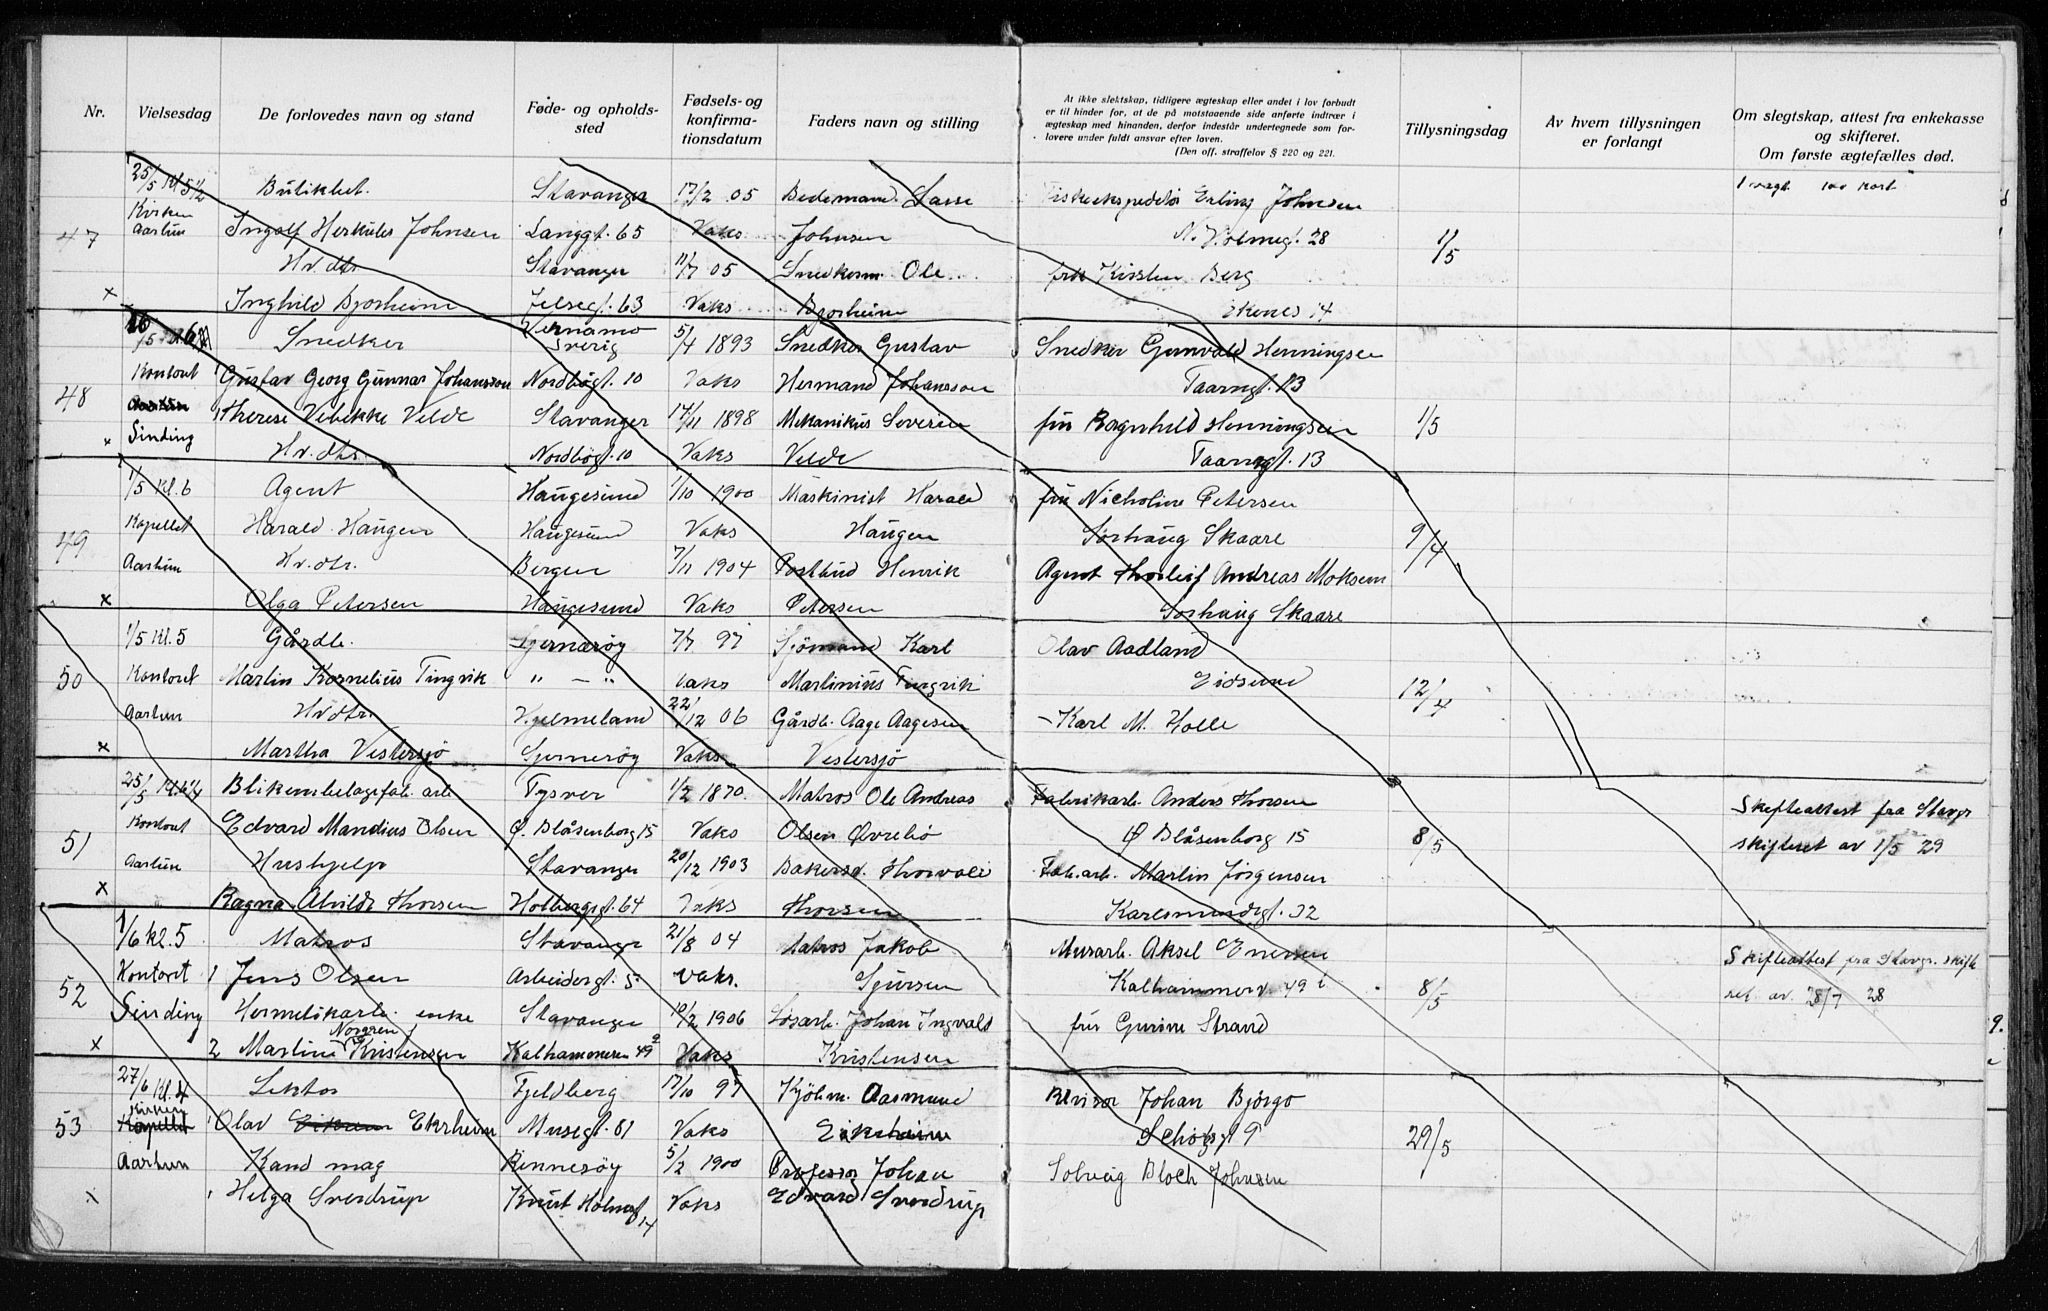 Nr. Vielsesdag De forlovedes navn og stand Føde- og opholds-sted Fødsels- og konfirma-tionsdatum Faders navn og stilling At ikke slektskap, tidligere ægteskap eller andet i lov forbudt er til hinder for, at de på motstaaende side anførte indtrær i ægteskap med hinanden, derfor indestår undertegnede som for-lovere under fuldt ansvar efter loven. (Den off. straffelov § 220 og 221. Tillysningsdag Av hvem tillysningen er forlangt Om slegtskap, attest fra enkekasse og skifteret. Om første ægtefælles død.
25/5 Kl 5 1/2 Butikbet. Stavanger 17/2 05 Bedemand Lasse Erling Johnsen
47 Kirken Aastun Ingolf Herkules Johnsen Langgt. 65 Vaks Johnsen N. Holmegt. 28 1/5
Hv. dtr. Stavanger 11/7 05 Snedkerm. Ole frk Kirsten Berg
x Inghild Bjorheim Jelsegt. 63 Vaks Bjorheim Ekenes 14
Snedker Vernamo Sverig 5/4 1893 Snedker Gustav Snedker Gunvald Henningsen
48 Kontoret Gustav Georg Gunnar Johansson Nordbøgt. 10 Vaks Hermand Johansson Taarngt. 13
Aastun Therese Vebekke Velde Stavanger 17/11 1898 Mekanikus Severin fru Ragnhild Henningsen 1/5
x Sinding Hv. dtr. Nordbøgt. 10 Vaks Velde Taarngt. 13
1/5 Kl. 6 Agent Haugesund 1/10 1900 Maskinist Harald fru Nicholine Petersen
49 Kapellet Harald Haugen Haugesund Vaks Haugen Sørhaug Skaare 9/4
Aastun Hv. dtr. Bergen 7/11 1904 Postbud Henrik Agent Thorleif Andreas Moksem
x Olga Petersen Haugesund Vaks Petersen Sørhaug Skaare
1/5 Kl. 5 Gårdb. Sjernarøy 7/7 97 Sjömand Karl Olav Aadland
50 Kontoret Martin Kornelius Tingvik " — " Vaks Martinius Tingvik Eidsund 12/4
Aastun Hv dtr. Hjelmeland 22/12 06 Gårdb. Aage Aagesen - Karl M. Holle
x Martha Vestersjø Sjernerøy Vaks Vestersjø
25/5 Kl. 6 1/4 Blikembalagefab. arb Tysver 1/2 1870 Matros Ole Andreas Fabrikarb. Anders Thorsen Skifteattest fra Stavgr
51 Kontoret Edvard Mandius Olsen Ø. Blåsenborg 15 Vaks Olsen Øvrebø Ø Blåsenborg 15 8/5 skifteret av 1/5 29
Aastun Hushjelp Stavanger 20/12 1903 Bakersv. Thorvald Fab. arb. Martin Jørgensen
x Ragna Alvilde Thorsen Holbergsgt. 64 Vaks Thorsen Karlsmindegt. 32
1/6 Kl. 5 Matros Stavanger 21/8 04 Matros Jakob Murarb. Aksel Enersen Skifteattest fra Stavgr. skifte
52 Kontoret 1 Jens Olsen Arbeidergt. 5 Vaks. Sjursen Kalhammerv. 49 8/5 ret. av 28/7 28
Sinding Hermetikarb. enke Stavanger 10/2 1906 Løsarb. Johan Ingvald fru Gurine Strand
x 2 Martine Norgren Kristensen Kalhammeren 49 Vaks Kristensen
27/6 Kl. 4 Lektor Fjeldberg 17/10 97 Kjøbm. Aasmund Revisor Johan Bjørgo
53 Kirken Kapellet Olav Eikrem Ekrheim Musegt. 81 Vaks 29/5
Aastun Kand mag Rennesøy 5/2 1900 Professor Johan Solveig Bloch Johnsen
x Helga Sverdrup Knut Holmsgt 14 Vaks Edvard Sverdrup